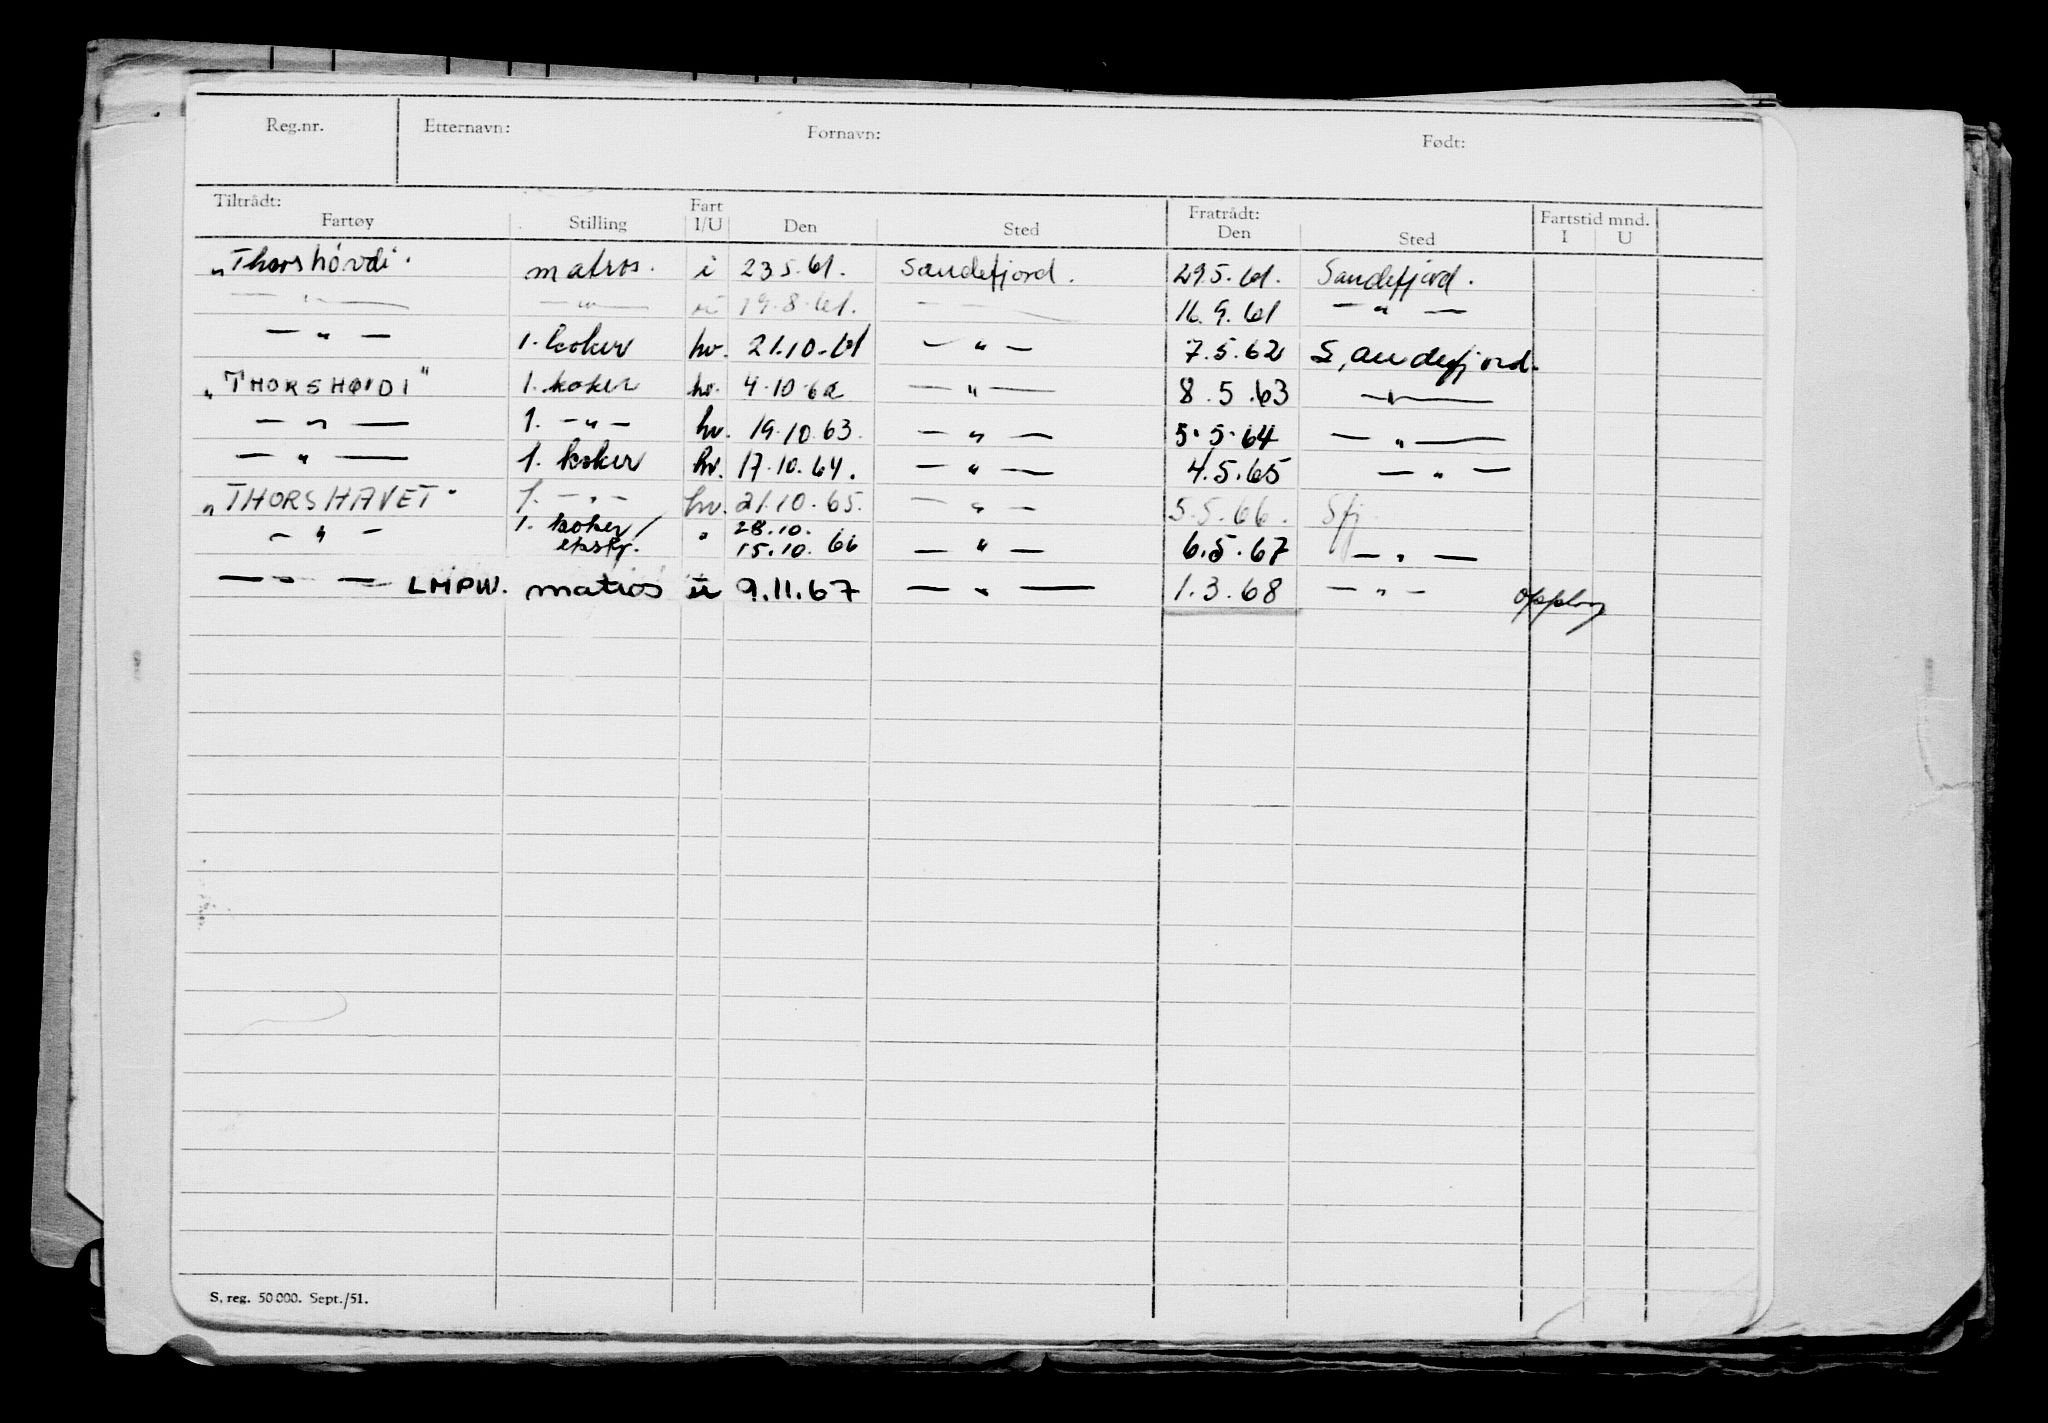 Reg.nr. Etternavn: Fornavn: Født:
Tiltrådt: Fart Fratrådt: Fartstid mnd.
Fartøy Stilling I/U Den Sted Den Sted I U
„Thorshövdi" matros. i 23 5.61. Sandefjord. 29.5.61. Sandefjord.
— „ — — „ — u 19.8.61. — — 16.9.61 — „ —
— „ — 1. koker hv. 21.10.61 — „ — 7.5.62 S,andefjord.
„THORSHØVDI" 1. koker hv. 4.10.62 — „ — 8.5.63 — „ —
— „ — 1. — „ — hv. 19.10.63. — „ — 5.5.64 — „ —
— „ — 1. koker hv. 17.10.64. — „ — 4.5.65 — „ —
„THORSHAVET" 1. — „ — hv. 21.10.65. — „ — 5.5.66. Sfj.
— „ — 1. koker/ „ 28.10.
15.10.66 — „ — 6.5.67 — „ —
— „ — LMPW. matros u 9.11.67 — „ — 1.3.68 — „ — opplag
S, reg. 50 000. Sept./51.